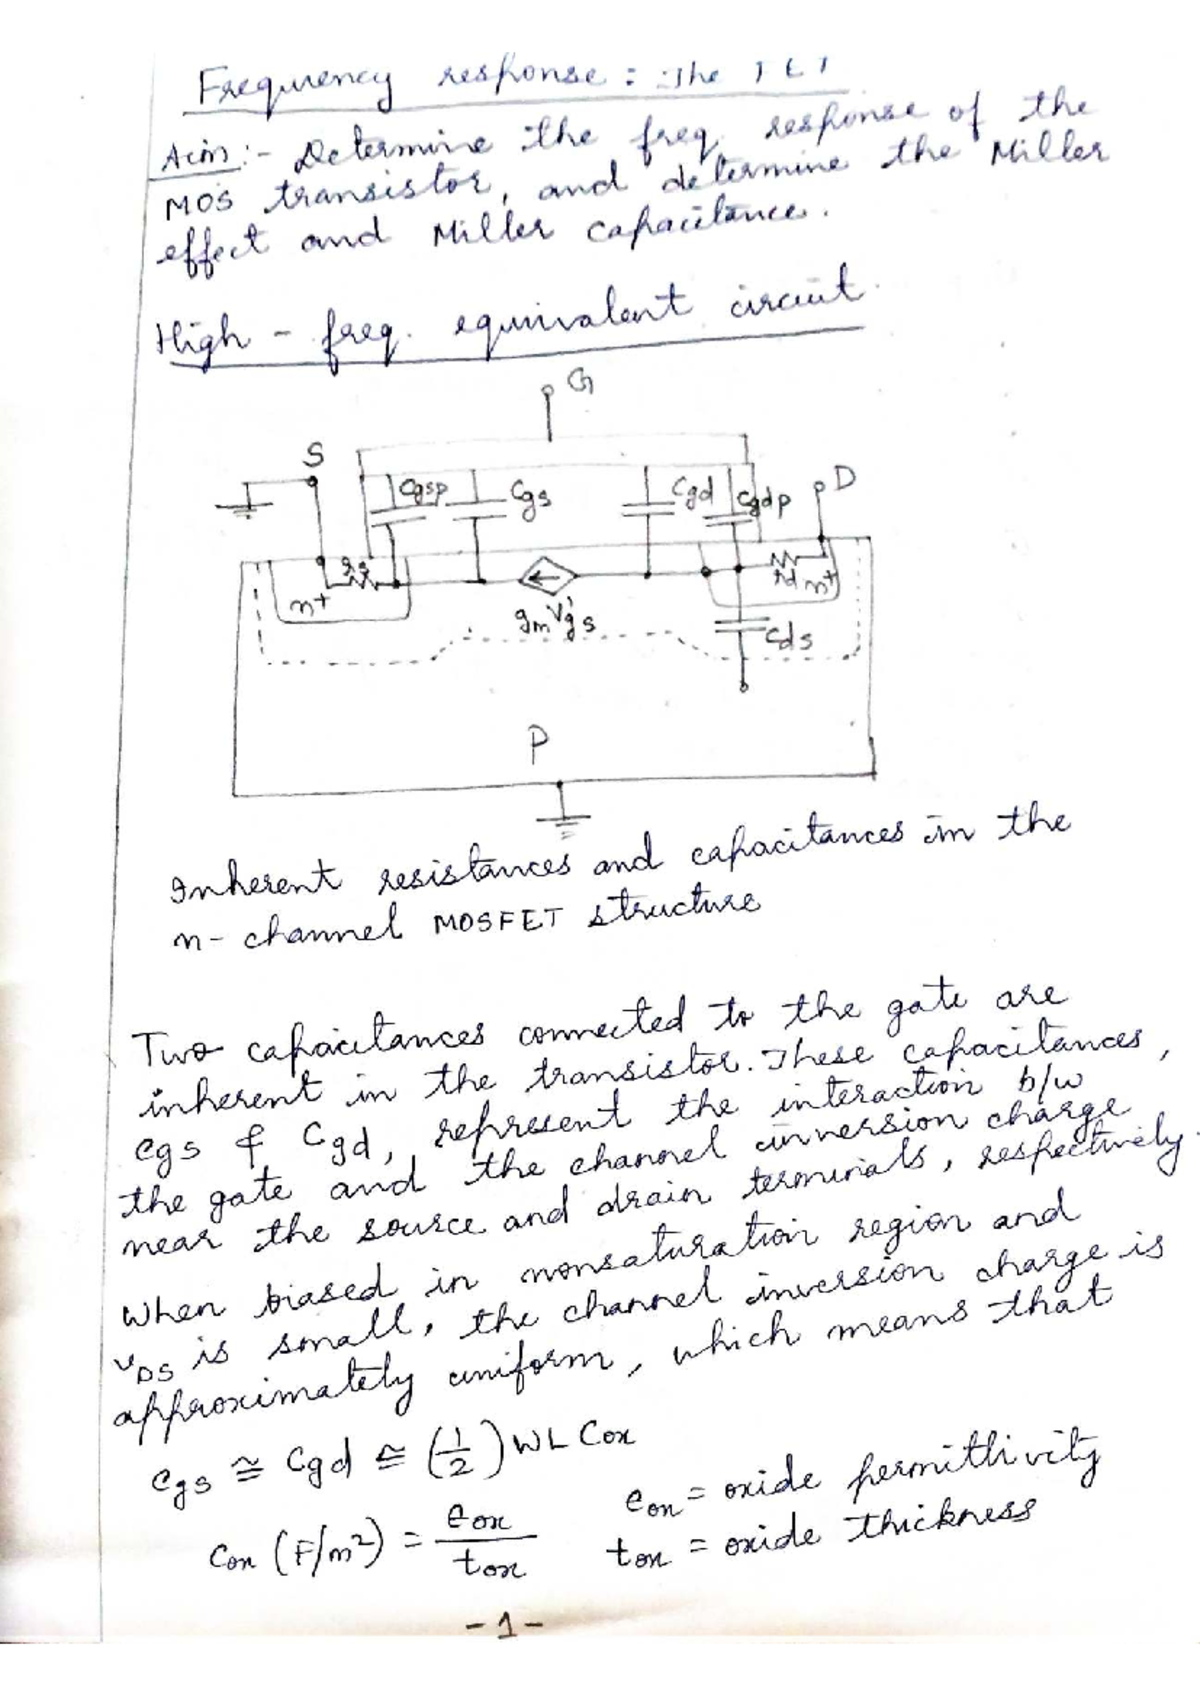 Frequency response : The FET
Aim :- Determine the freq. response of the
MOS transistor, and determine the Miller
effect and Miller capacitance.
High - freq. equivalent circuit.
G
S
D
Cgsp
Cgs
Cgd
Cgdp
rs
rd
n+
n+
gmV'gs
Cds
P
Inherent resistances and capacitances in the
n- channel MOSFET structure
Two capacitances connected to the gate are
inherent in the transistor. These capacitances,
Cgs & Cgd, represent the interaction b/w
the gate and the channel inversion charge
near the source and drain terminals, respectively.
When biased in nonsaturation region and
vDS is small, the channel inversion charge is
approximately uniform, which means that
Cgs ≅ Cgd ≅ (1/2) WL Cox
Cox (F/m²) = eox / tox
eox = oxide permittivity
tox = oxide thickness
-1-